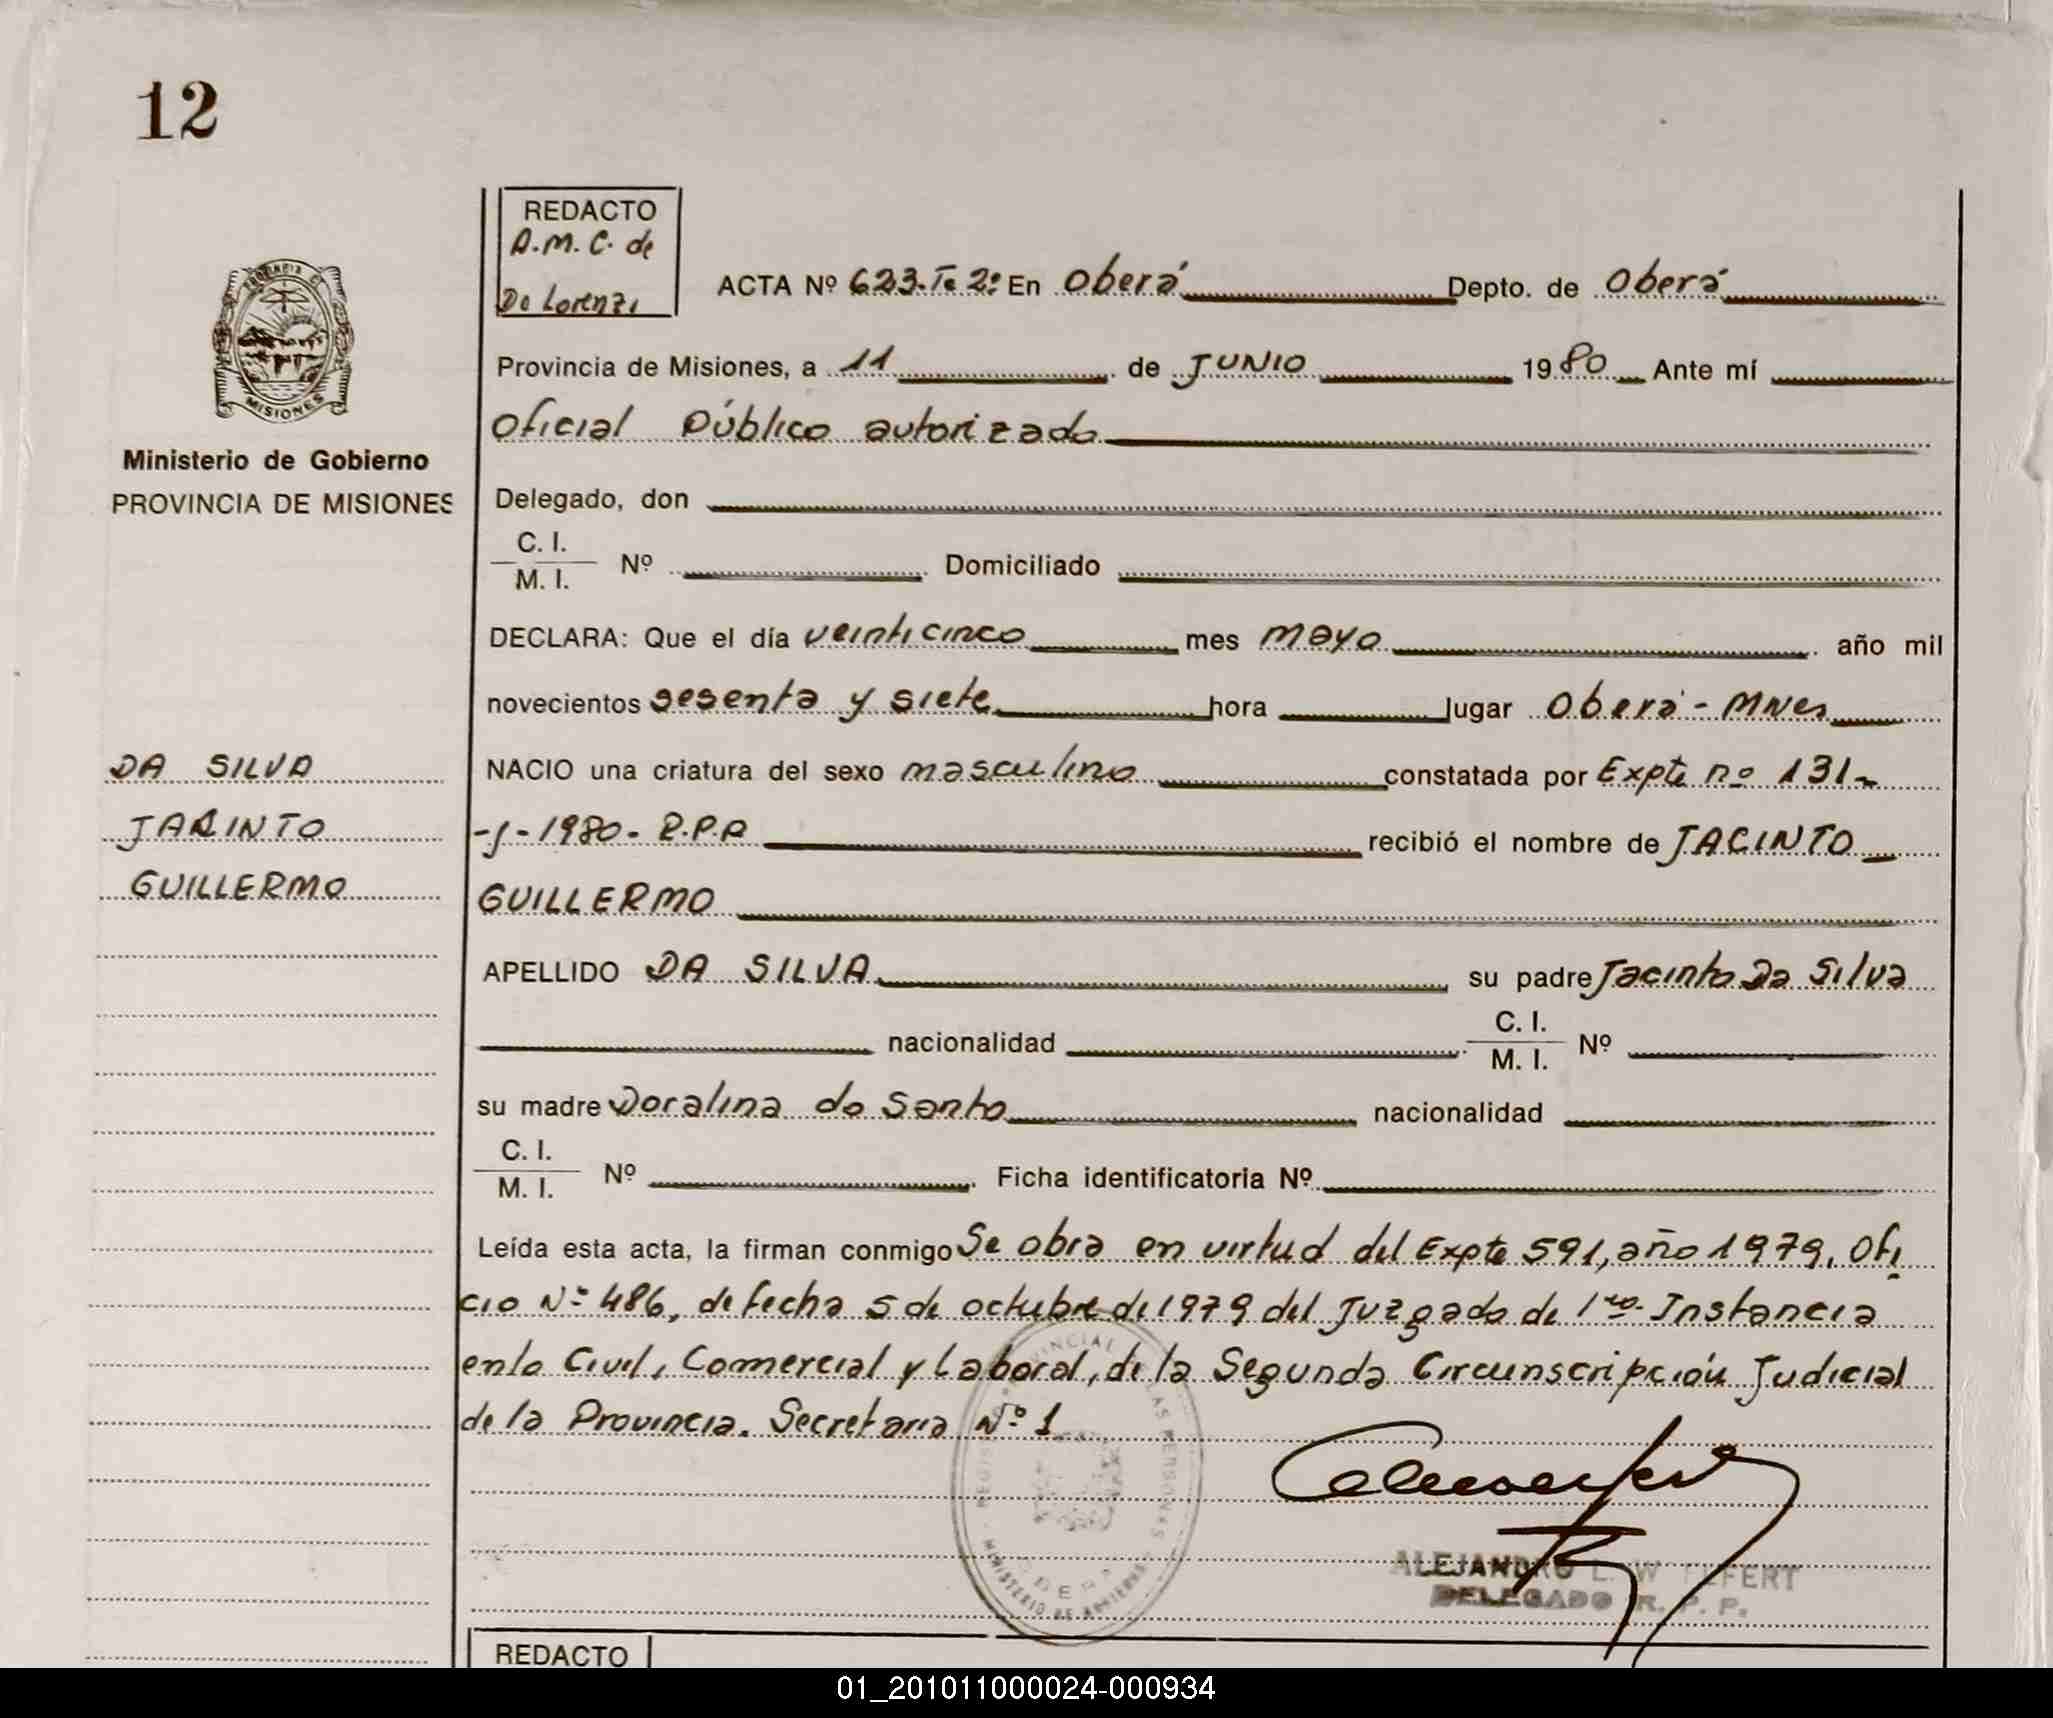 12
REDACTO
A.M.C. de
De Lorenzi
ACTA Nº 623. Tº 2º En Oberá Depto. de Oberá
Provincia de Misiones, a 11 de JUNIO 1980 Ante mí
Oficial Público autorizado
Ministerio de Gobierno
PROVINCIA DE MISIONES
MISIONES
Delegado, don
C. I.
M. I. Nº Domiciliado
DECLARA: Que el día veinticinco mes mayo año mil
novecientos sesenta y siete hora lugar Oberá - Mnes
DA SILVA
JACINTO
GUILLERMO
NACIO una criatura del sexo masculino constatada por Expte nº 131-
-J-1980- R.P.P. recibió el nombre de JACINTO
GUILLERMO
APELLIDO DA SILVA su padre Jacinto Da Silva
nacionalidad C. I.
M. I. Nº
su madre Doralina do Santo nacionalidad
C. I.
M. I. Nº Ficha identificatoria Nº
Leída esta acta, la firman conmigo Se obra en virtud del Expte 591, año 1979, Ofi
cio Nº 486, de fecha 5 de octubre de 1979 del Juzgado de 1ra. Instancia
en lo Civil, Comercial y Laboral, de la Segunda Circunscripción Judicial
de la Provincia. Secretaria Nº 1
MINISTERIO DE GOBIERNO
OBERA
ALEJANDRO L. W
DELEGADO R. P. P.
REDACTO
01_201011000024-000934